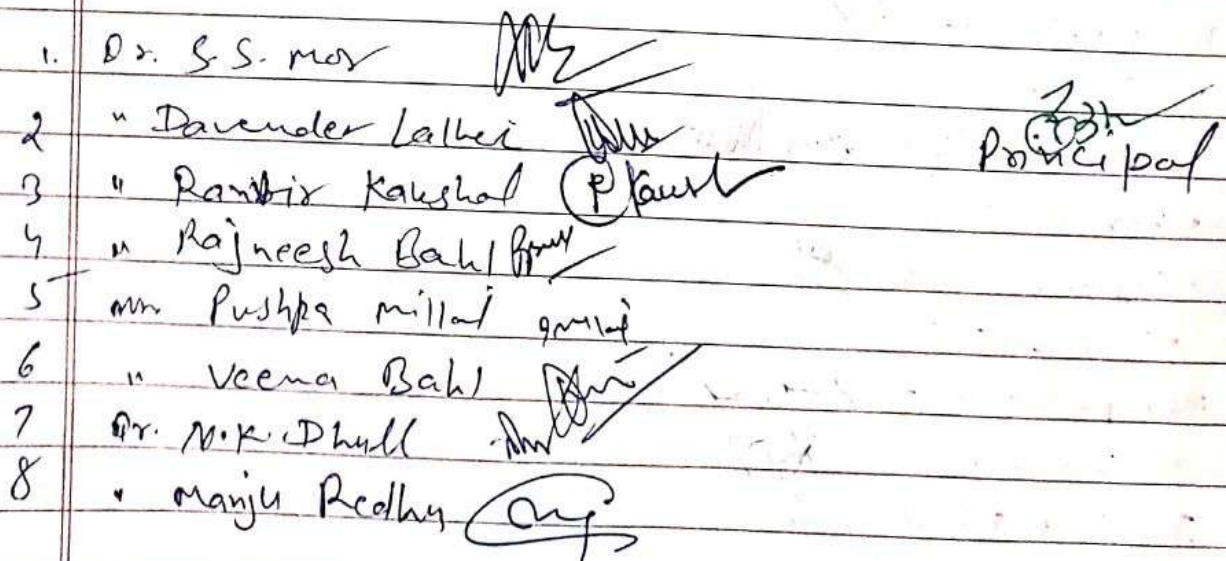 1. Dr. S.S. Mor
2 " Davender Lathei
3 " Ranbir Kaushal
4 " Rajneesh Bahl
5 Mrs Pushpa Millal
6 " Veena Bahl
7 Dr. N.K. Dhull
8 " Manju Redhu
Principal